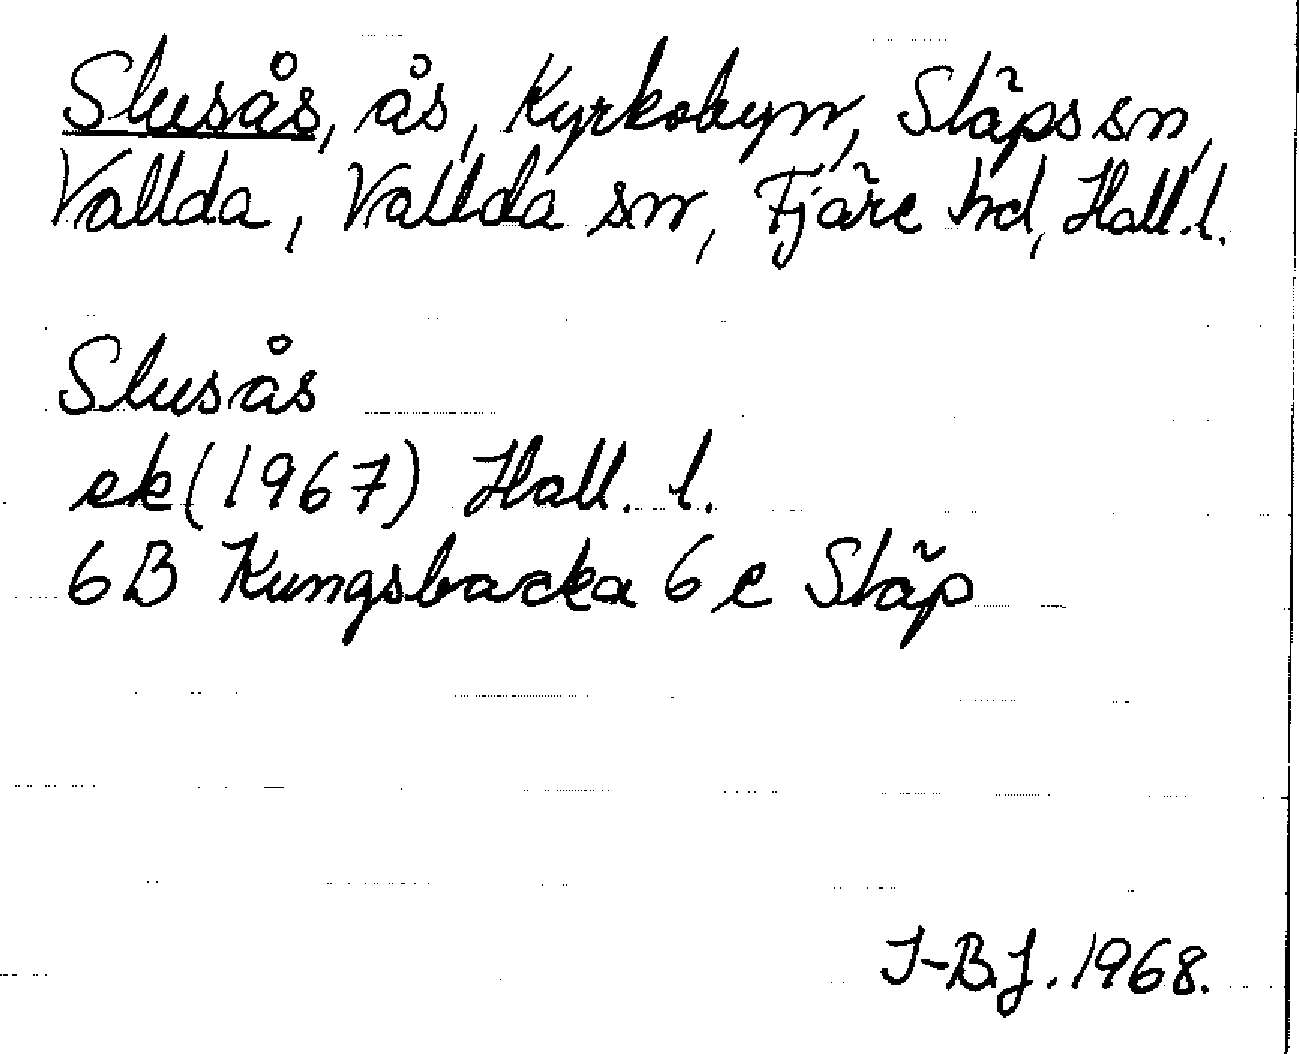 Slusås, ås, Kyrkobyn, Släps sn,
Vallda, Vallda sn, Fjäre hd, Hall.l.
Slusås
ek (1967) Hall. l.
6B Kungsbacka 6 e Släp
I-B.J. 1968.